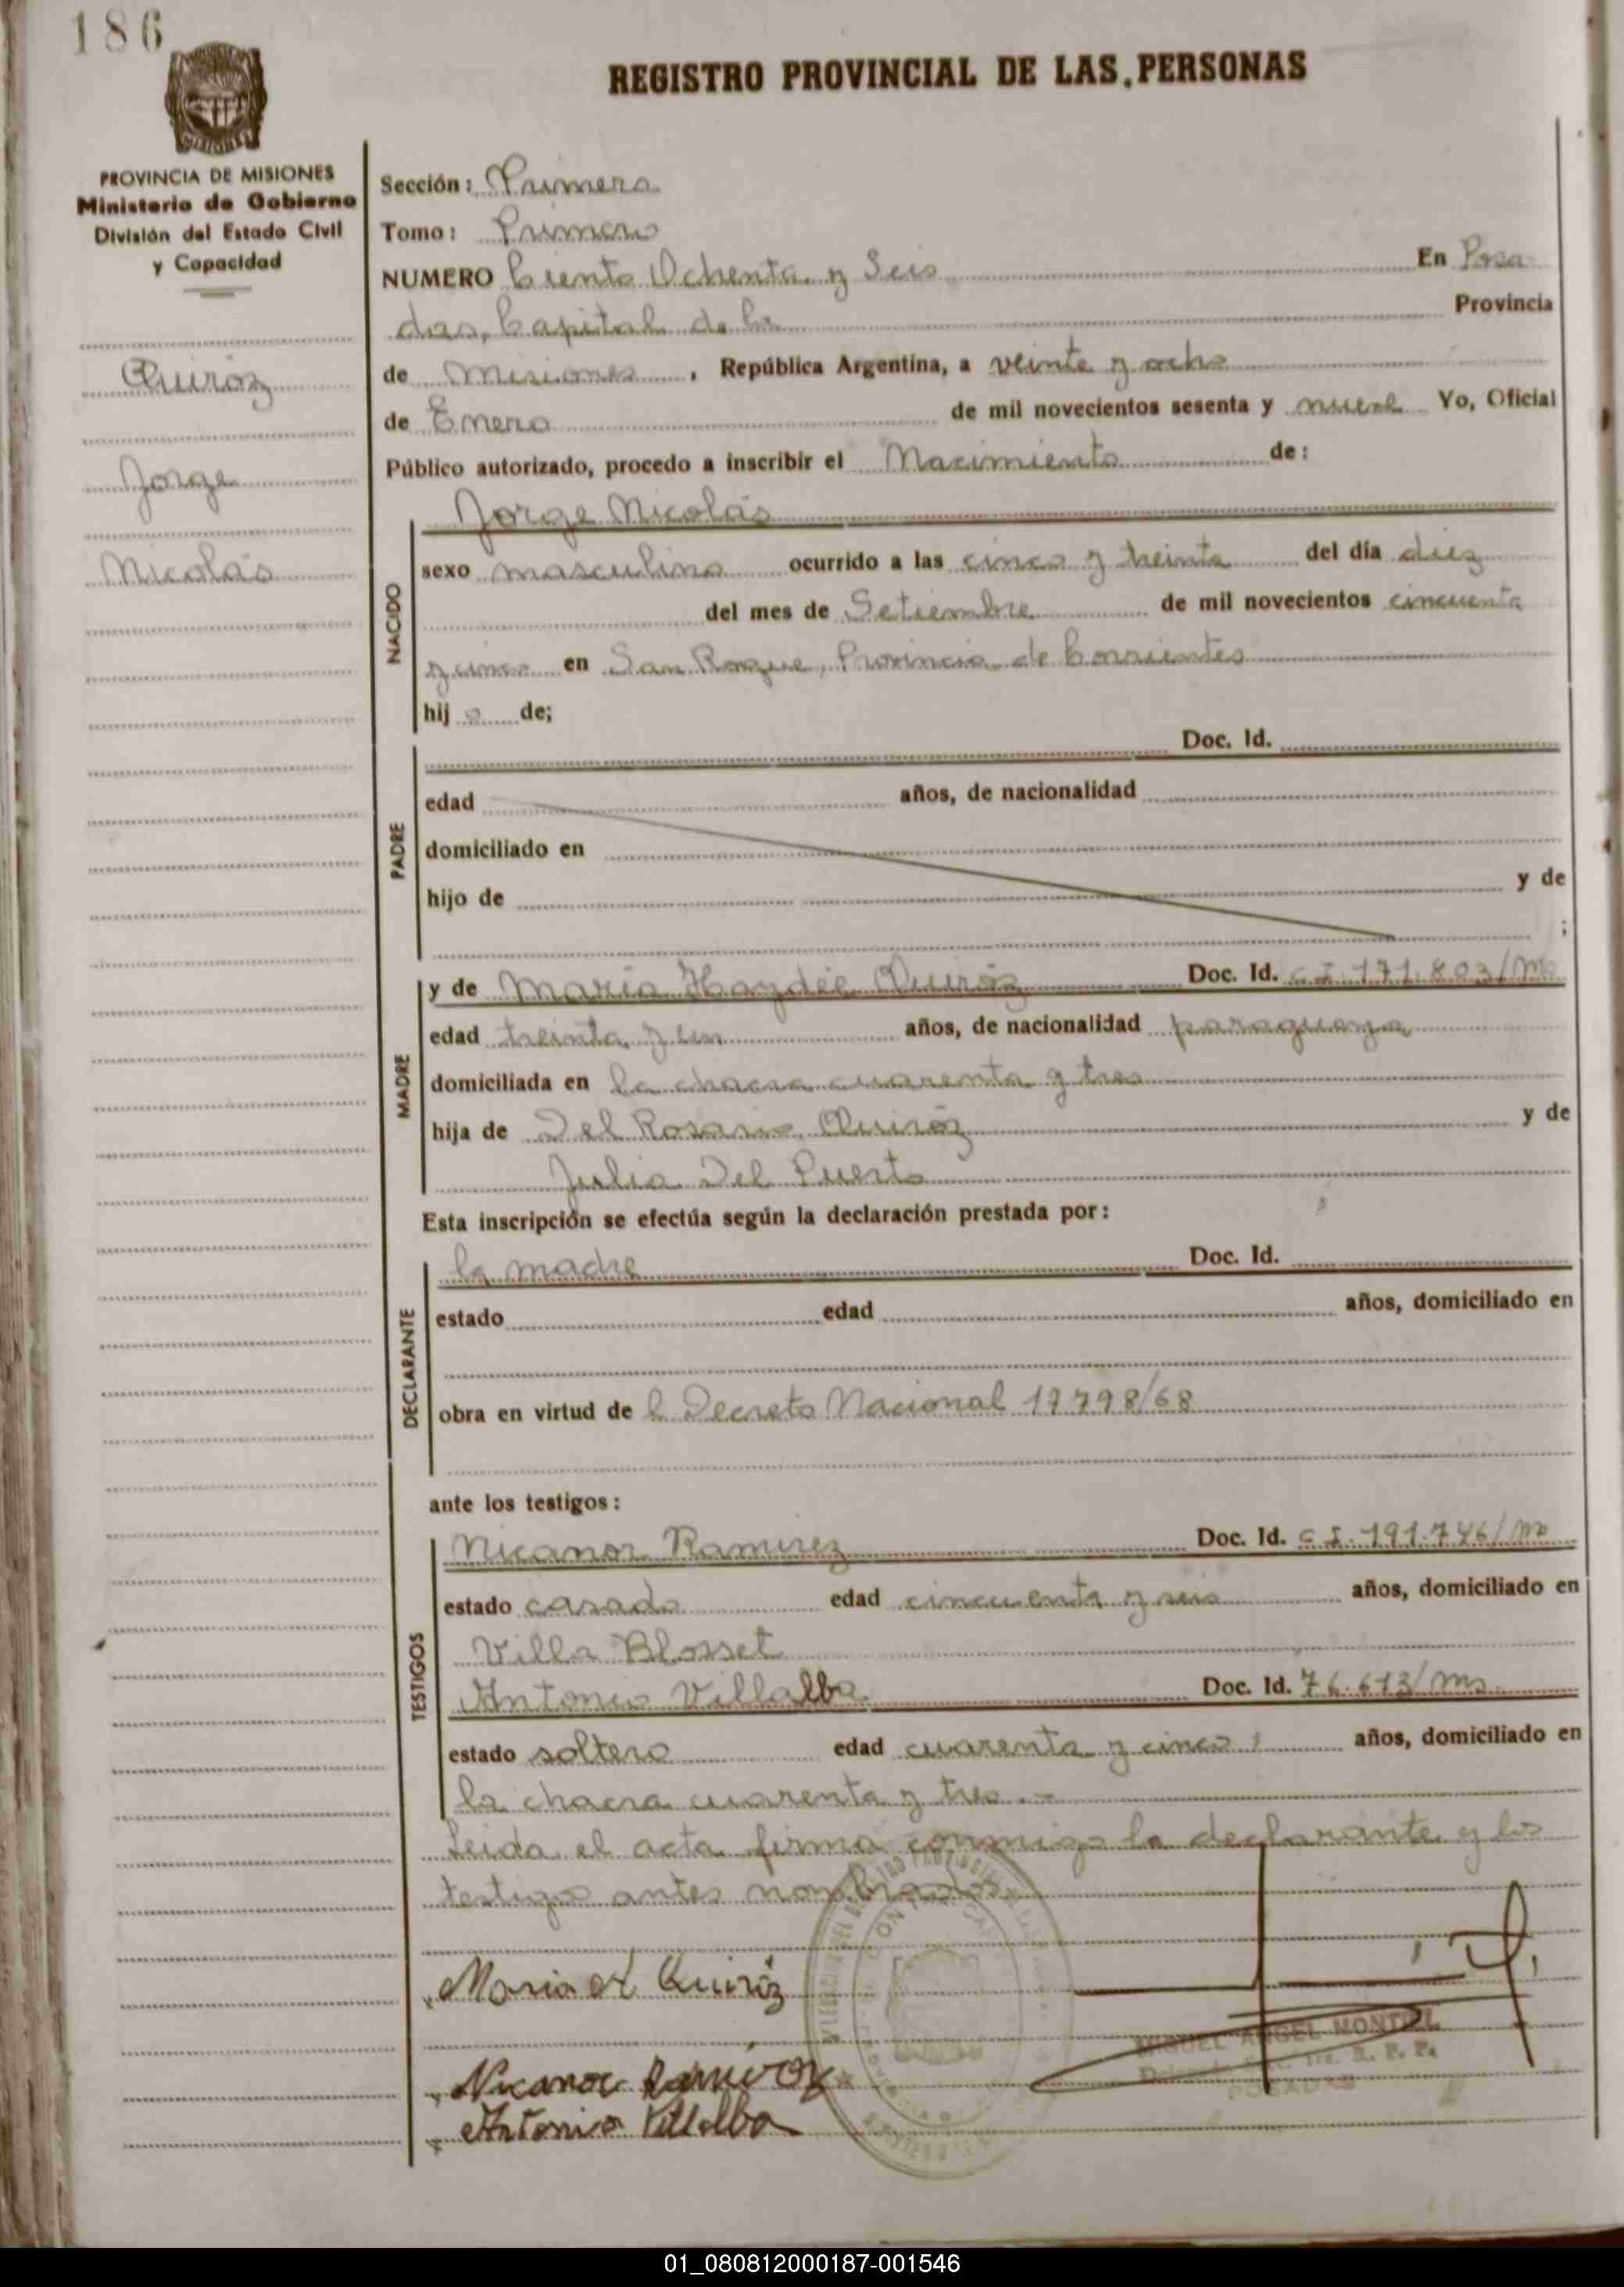 186
REGISTRO PROVINCIAL DE LAS PERSONAS
PROVINCIA DE MISIONES
Ministerio de Gobierno
División del Estado Civil
y Capacidad
Quiróz
Jorge
Nicolás
Sección: Primera
Tomo: Primero
NUMERO Ciento Ochenta y Seis En Posa
das, Capital de la Provincia
de Misiones, República Argentina, a veinte y ocho
de Enero de mil novecientos sesenta y nueve Yo, Oficial
Público autorizado, procedo a inscribir el Nacimiento de:
NACIDO
Jorge Nicolás
sexo masculino ocurrido a las cinco y treinta del día diez
del mes de Setiembre de mil novecientos cincuenta
y cinco en San Roque, Provincia de Corrientes
hij o de;
PADRE
Doc. Id.
edad años, de nacionalidad
domiciliado en
hijo de y de
;
MADRE
y de María Haydée Quiróz Doc. Id. C.I. 171.803/Ms
edad treinta y un años, de nacionalidad paraguaya
domiciliada en la chacra cuarenta y tres
hija de Del Rosario Quiróz y de
Julia Del Puerto
Esta inscripción se efectúa según la declaración prestada por:
DECLARANTE
la madre Doc. Id.
estado edad años, domiciliado en
obra en virtud de l Decreto Nacional 17798/68
ante los testigos:
TESTIGOS
Nicanor Ramirez Doc. Id. C.I. 191.746/Ms
estado casado edad cincuenta y seis años, domiciliado en
Villa Blosset
Antonio Villalba Doc. Id. 76.613/Ms
estado soltero edad cuarenta y cinco años, domiciliado en
la chacra cuarenta y tres.-
Leida el acta firma conmigo la declarante y los
testigos antes nombrados
Maria H Quiróz
Nicanor Ramirez
Antonio Villalba
MIGUEL ANGEL MONTIEL
POSADAS
01_080812000187-001546